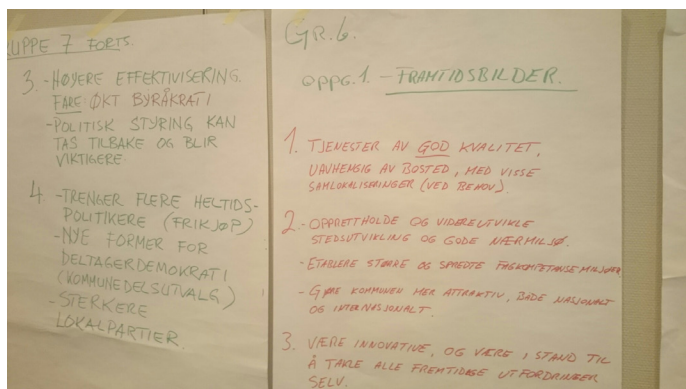 RUPPE 7 FORTS.
3 - HØYERE EFFEKTIVISERING.
FARE ØKT BYRÅKRATI
- POLITISK STYRING KAN
TAS TILBAKE OG BLIR
VIKTIGERE
4 - TRENGER FLERE HELTIDS-
POLITIKERE (FRIKJØP)
- NYE FORMER FOR
DELTAGERDEMOKRATI
(KOMMUNEDELSUTVALG)
- STERKERE
LOKALPARTIER.
GR.6.
OPPG.1. - FRAMTIDSBILDER.
1. TJENESTER AV GOD KVALITET,
UAVHENGIG AV BOSTED, MED VISSE
SAMLOKALISERINGER (VED BEHOV).
2 - OPPRETTHOLDE OG VIDEREUTVIKLE
STEDSUTVIKLING OG GODE NÆRMILJØ.
- ETABLERE STØRRE OG SPREDTE FAGKOMPETANSEMILJØER
- GJØRE KOMMUNEN MER ATTRAKTIV, BÅDE NASJONALT
OG INTERNASJONALT.
3. VÆRE INNOVATIVE, OG VÆRE I STAND TIL
Å TAKLE ALLE FREMTIDIGE UTFORDRINGER
SELV.